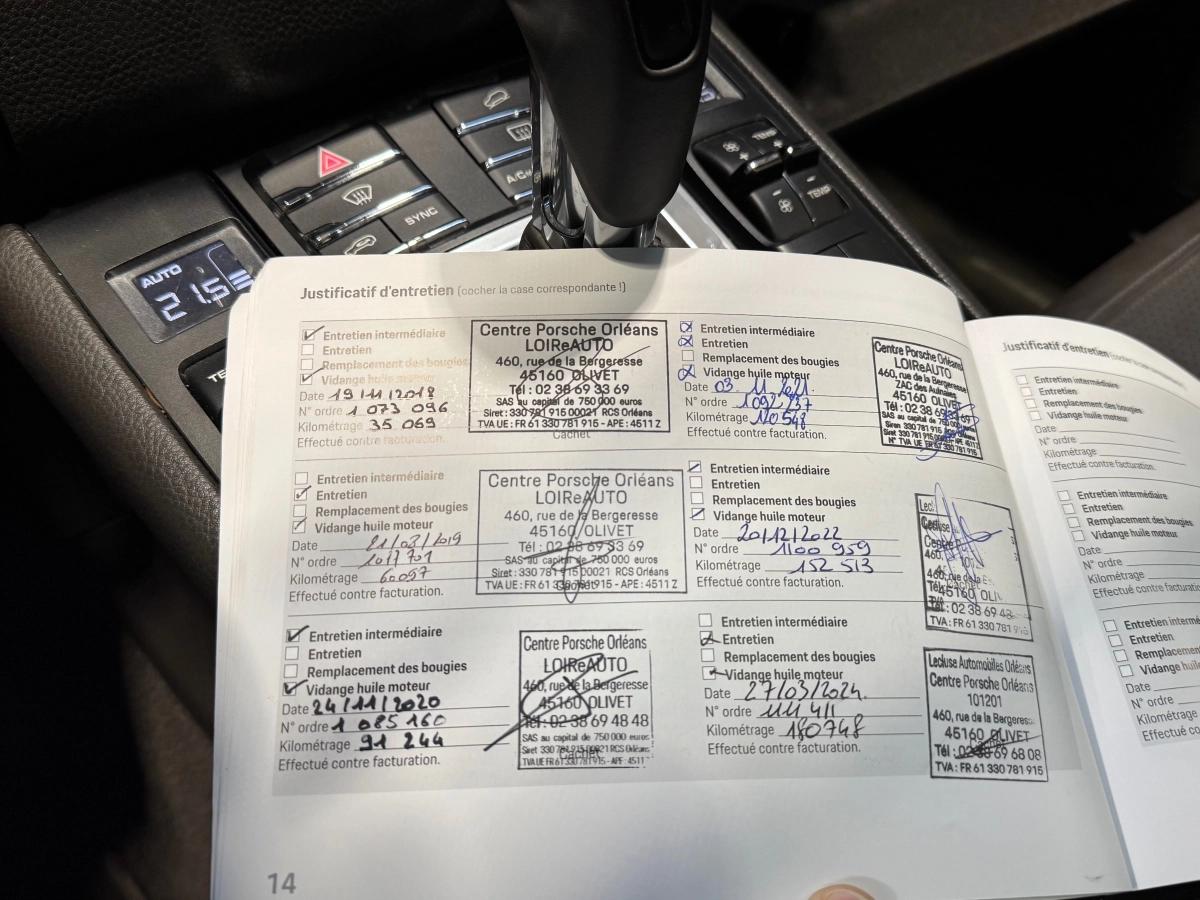 AUTO
21.5
SYNC
A/C
TEMP
TEMP
Justificatif d'entretien (cocher la case correspondante !)
Entretien intermédiaire
Entretien
Remplacement des bougies
Vidange huile moteur
Date 19/11/2018
N° ordre 1 073 096
Kilométrage 35 069
Effectué contre facturation.
Centre Porsche Orléans
LOIReAUTO
460, rue de la Bergeresse
45160 OLIVET
Tél : 02 38 69 33 69
SAS au capital de 750 000 euros
Siret : 330 781 915 00021 RCS Orléans
TVA UE : FR 61 330 781 915 - APE : 4511 Z
Cachet
Entretien intermédiaire
Entretien
Remplacement des bougies
Vidange huile moteur
Date 03. 11. 2021.
N° ordre 1092 737
Kilométrage 120 548
Effectué contre facturation.
Centre Porsche Orléans
LOIReAUTO
460, rue de la Bergeresse
ZAC des Aulnaies
45160 OLIVET
Tél : 02 38 69 33 69
SAS au capital de 750 000 euros
Siren 330 781 915
N° TVA UE FR 61 330 781 915
Entretien intermédiaire
Entretien
Remplacement des bougies
Vidange huile moteur
Date 21/03/2019
N° ordre
Kilométrage 60097
Effectué contre facturation.
Centre Porsche Orléans
LOIReAUTO
460, rue de la Bergeresse
45160 OLIVET
Tél : 02 38 69 33 69
SAS au capital de 750 000 euros
Siret : 330 781 915 00021 RCS Orléans
TVA UE : FR 61 330 781 915 - APE : 4511 Z
Entretien intermédiaire
Entretien
Remplacement des bougies
Vidange huile moteur
Date 20/12/2022
N° ordre 1100 959
Kilométrage 152 513
Effectué contre facturation.
460, rue de la
45160 OLI
Tél : 02 38 69 48
TVA : FR 61 330 781 915
Entretien intermédiaire
Entretien
Remplacement des bougies
Vidange huile moteur
Date 24/11/2020
N° ordre 1 085 160
Kilométrage 91 244
Effectué contre facturation.
Centre Porsche Orléans
LOIReAUTO
460, rue de la Bergeresse
45160 OLIVET
Tél : 02 38 69 48 48
SAS au capital de 750 000 euros
Siret 330 781 915 00021 RCS Orléans
TVA UE FR 61 330 781 915 - APE : 4511
Cachet
Entretien intermédiaire
Entretien
Remplacement des bougies
Vidange huile moteur
Date 27/03/2024.
N° ordre 111 411
Kilométrage 180748
Effectué contre facturation.
Lecluse Automobiles Orléans
Centre Porsche Orléans
101201
460, rue de la Bergeresse
45160 OLIVET
Tél : 02 38 69 68 08
TVA : FR 61 330 781 915
14
Justificatif d'entretien
Entretien intermédiaire
Entretien
Remplacement des bougies
Vidange huile moteur
Date
N° ordre
Kilométrage
Effectué contre facturation.
Entretien intermédiaire
Entretien
Remplacement des bougies
Vidange huile moteur
Date
N° ordre
Kilométrage
Effectué contre facturation
Entretien interm
Entretien
Remplacement
Vidange huile
Date
N° ordre
Kilométrage
Effectué contre